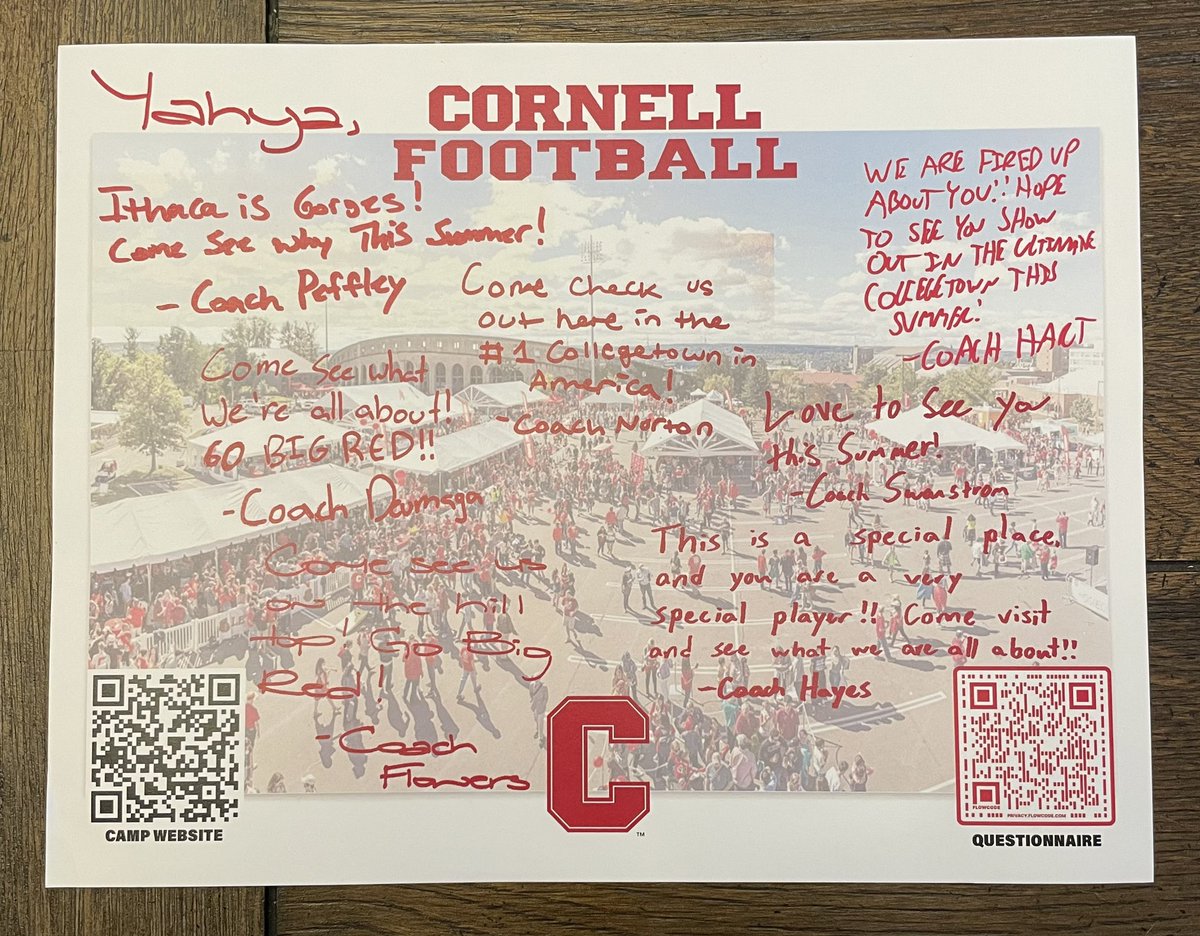 Yahya,
CORNELL
FOOTBALL
Ithaca is Gorges!
Come See why This Summer!
- Coach Peffley
WE ARE FIRED UP
ABOUT YOU!! HOPE
TO SEE YOU SHOW
OUT IN THE ULTIMATE
COLLEGETOWN THIS
SUMMER!
- COACH HART
Come check us
out here in the
#1 Collegetown in
America!
- Coach Norton
Come see what
We're all about!
GO BIG RED!!
- Coach
Love to see you
this Summer!
- Coach Swanstrom
Come see us
on the hill
top! Go Big
Red!
- Coach
Flowers
This is a special place,
and you are a very
special player!! Come visit
and see what we are all about!!
- Coach Hayes
C
TM
CAMP WEBSITE
FLOWCODE
PRIVACY.FLOWCODE.COM
QUESTIONNAIRE